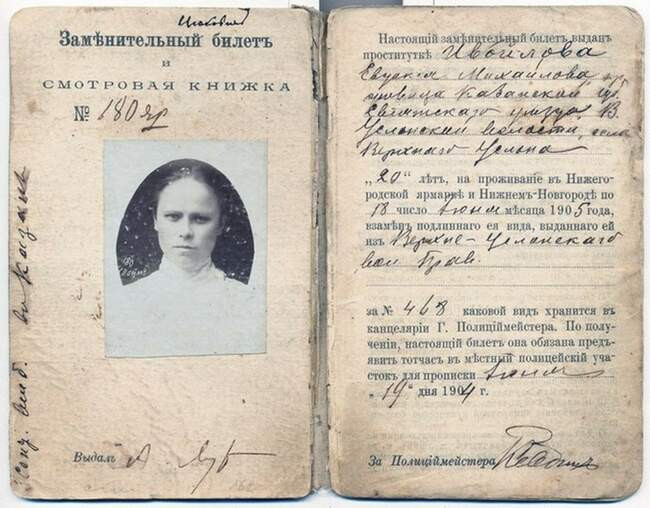 Замѣнительный билетъ
и
СМОТРОВАЯ КНИЖКА
№ 180 яр
Выдалъ
Настоящій замѣнительный билетъ выданъ
проституткѣ Ивойлова
Евдокія Михайлова
Казанской губ
Свіяжскаго уѣзда В.
Услонской волости, села
Верхняго Услона
„20“ лѣтъ, на проживаніе въ Нижего-
родской ярмаркѣ и Нижнемъ-Новгородѣ по
18 число Іюня мѣсяца 1905 года,
взамѣнъ подлиннаго ея вида, выданнаго ей
изъ Верхне-Услонскаго
вол Прав.
за № 468 каковой видъ хранится въ
канцеляріи Г. Полиціймейстера. По полу-
ченіи, настоящій билетъ она обязана предъ-
явить тотчасъ въ мѣстный полицейскій уча-
стокъ для прописки Іюня
„19“ дня 1904 г.
За Полиціймейстера